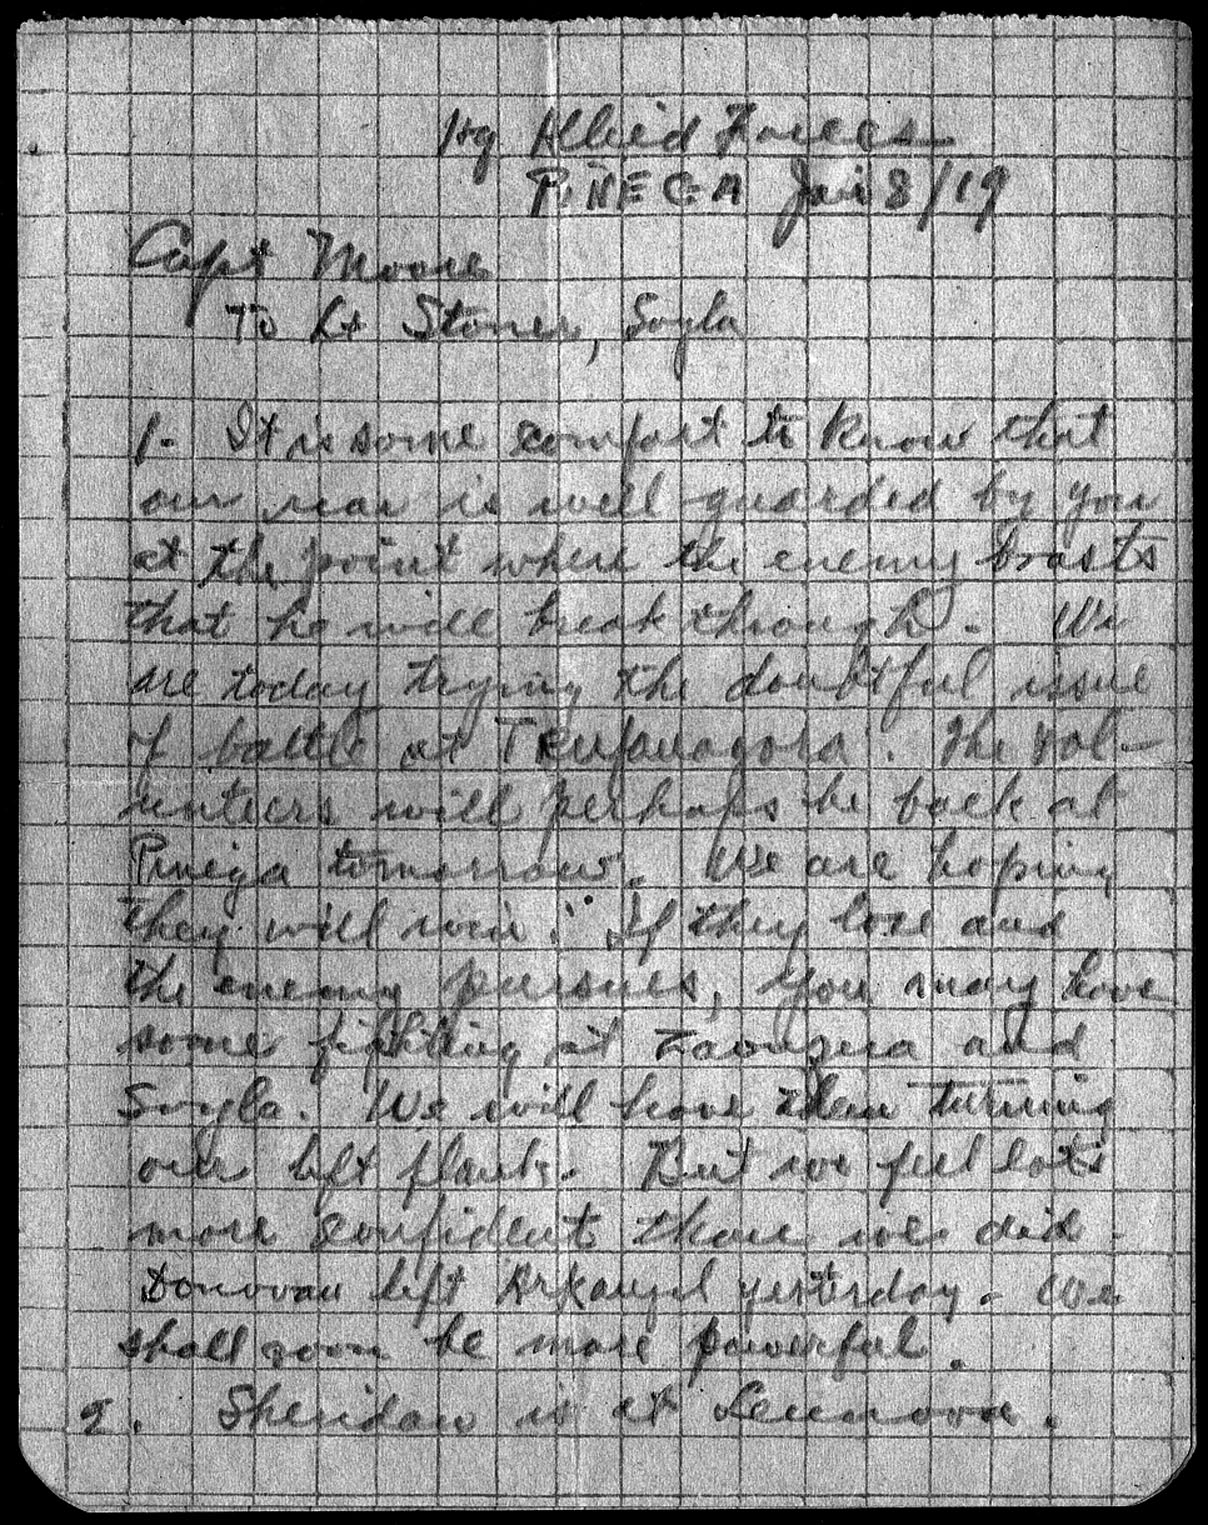 Hq Allied Forces
PINEGA Jan 8/19
Capt Moore
To Lt Stoner, Soyla
1. It is some comfort to know that
our rear is well guarded by you
at the point where the enemy boasts
that he will break through. We
are today trying the doubtful issue
of battle at Trufanagora. The vol-
unteers will perhaps be back at
Pinega tomorrow. We are hoping
they will win. If they lose and
the enemy pursues, you may have
some fighting at and
Soyla. We will have them turning
our left flank. But we feel lots
more confident than we did.
Donovan left Arkangel yesterday. We
shall soon be more powerful.
2. Sheridan is at Leunova.